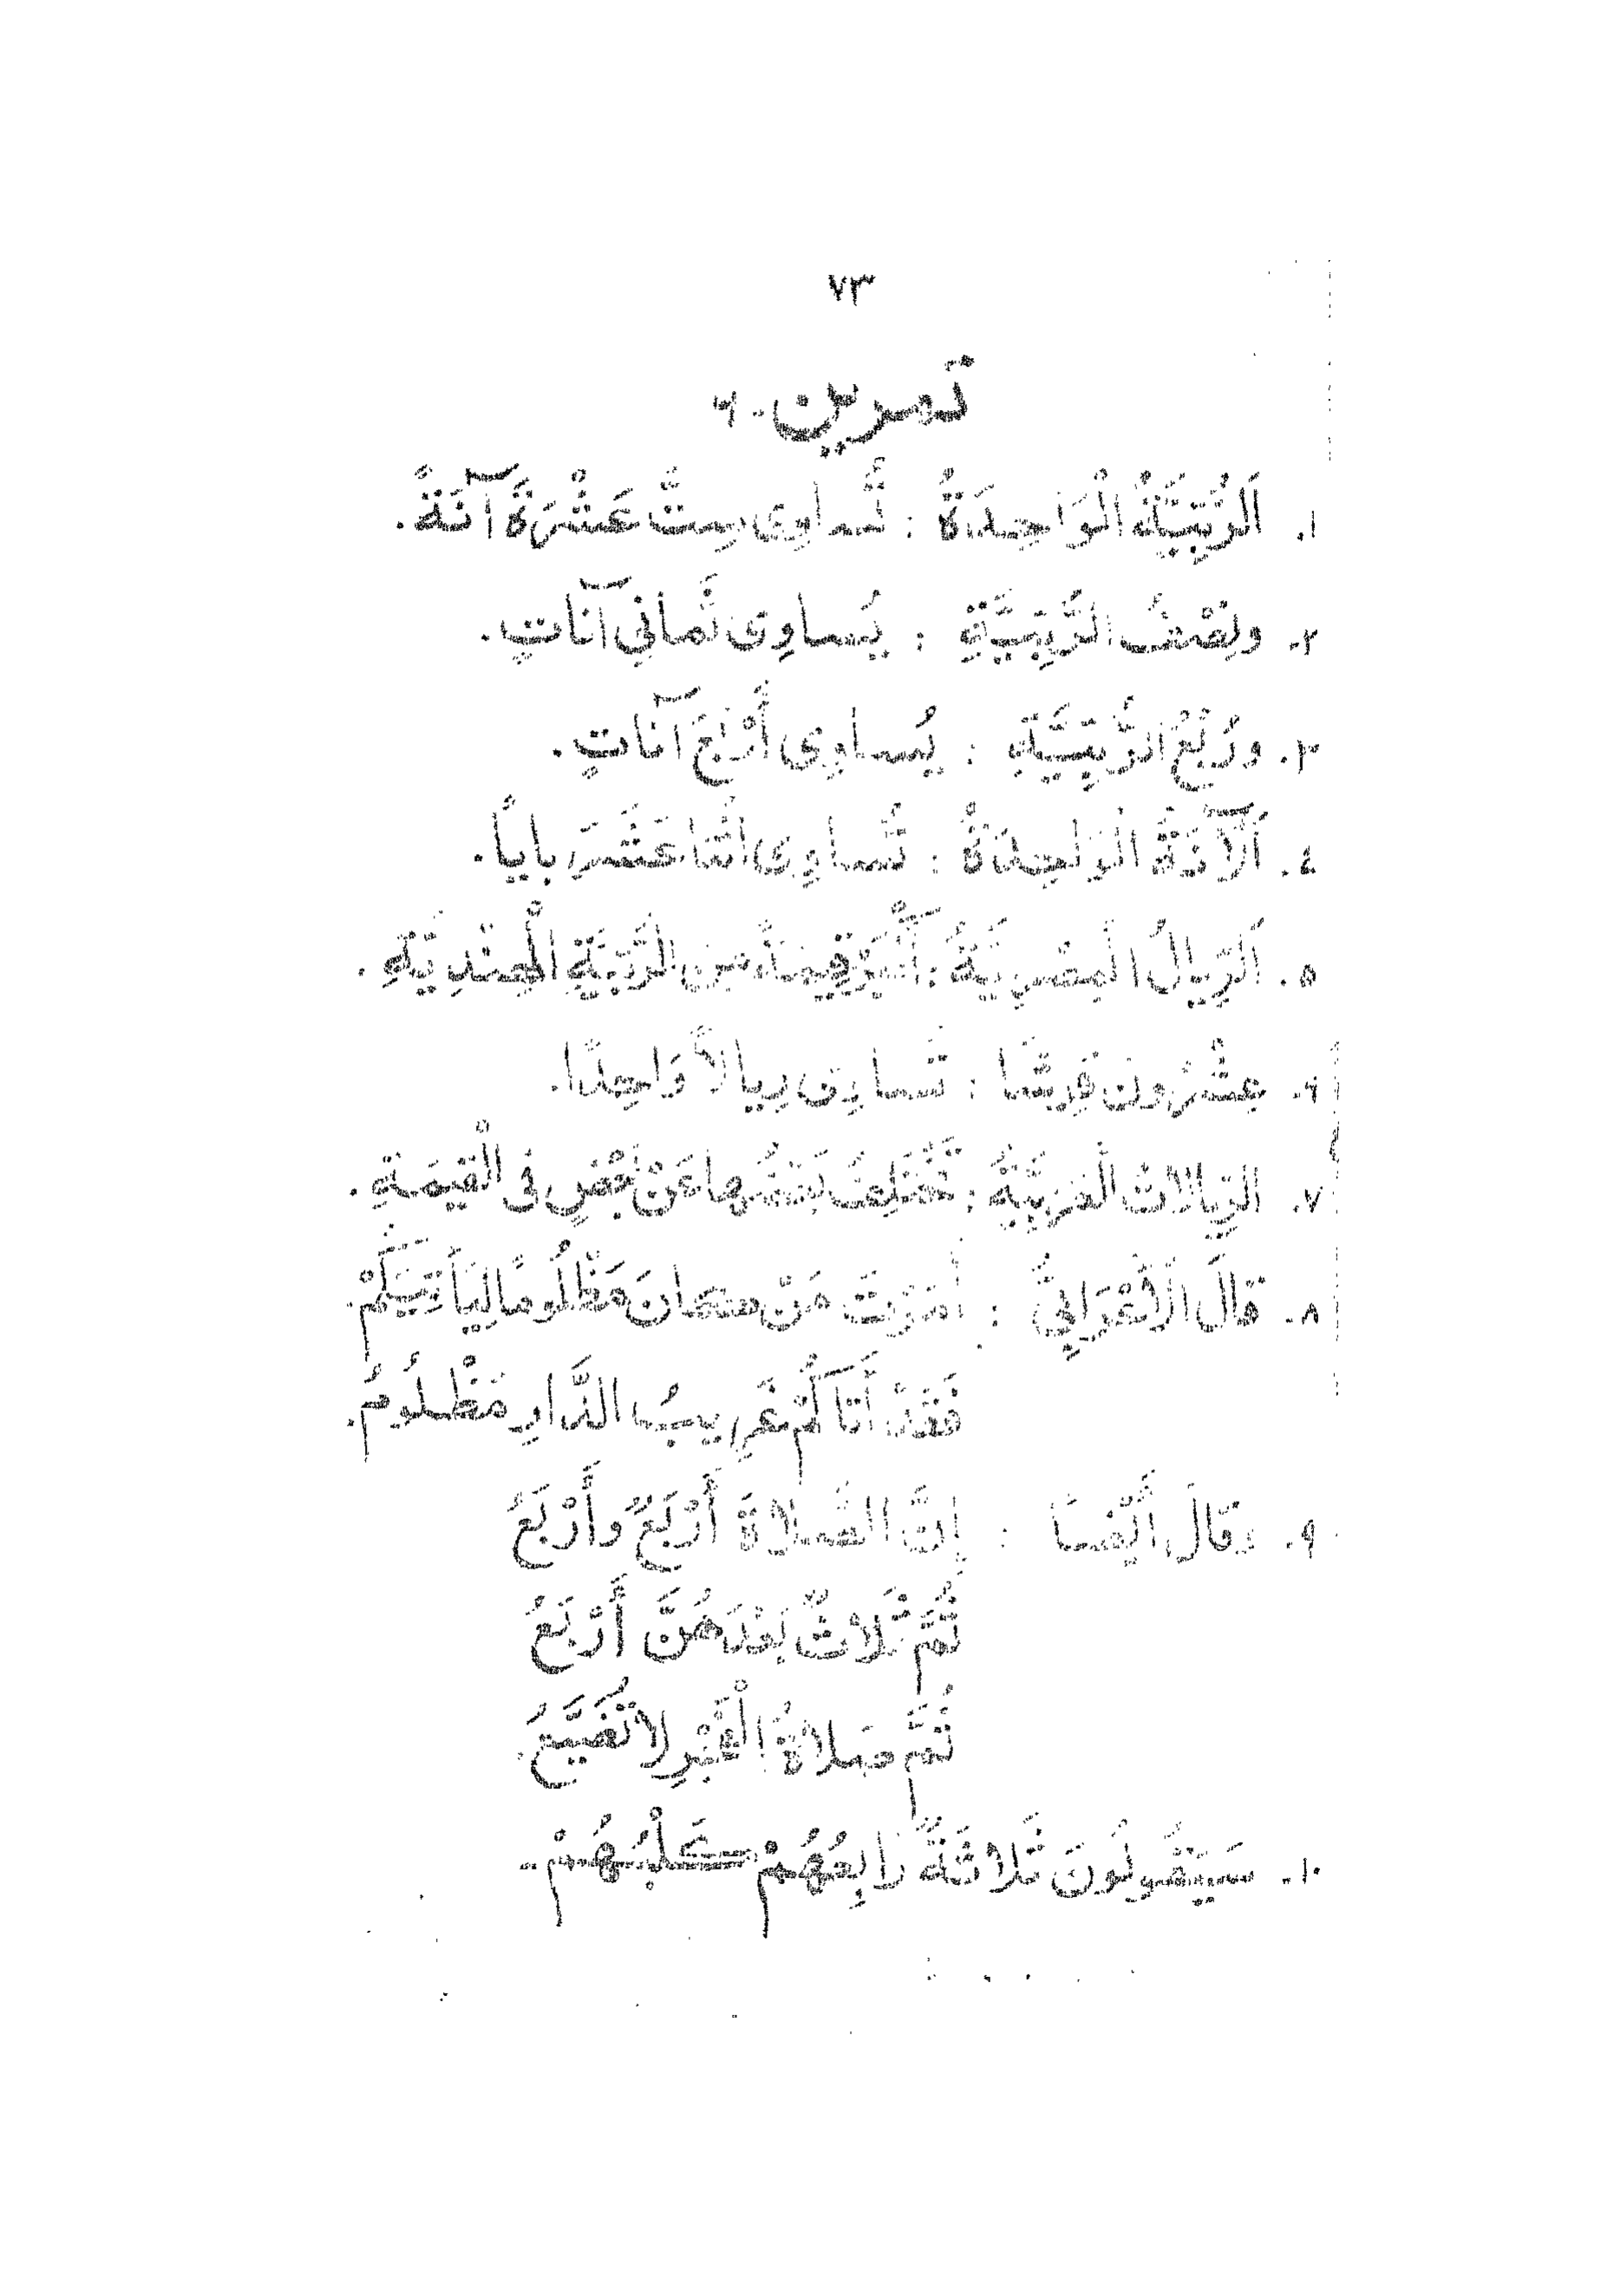 ٧٣
تمرين - ٦
١. اَلرُّبِّيَّةُ الْوَاحِدَةُ : تُساوِى سِتَّ عَشْرَةَ آنَةً.
٢. ونِصْفُ الرُّبِّيَّةِ : يُساوِى ثَمانِيَ آنَاتٍ.
٣. ورُبْعُ الرُّبِّيَّةِ : يُساوِى أَرْبَعَ آنَاتٍ.
٤. اَلْآنَةُ الْوَاحِدَةُ : تُساوِى اثْنَا عَشَرَ بايًا.
٥. اَلرِّيالُ الْمِصْرِيَّةُ : أَكْبَرُ قِيمَةً مِنَ الرُّبِّيَّةِ الْهِنْدِيَّةِ.
٦. عِشْرُونَ قِرْشًا : تُساوِى رِيالاً وَاحِدًا.
٧. الرِّيالاتُ الْعَرَبِيَّةُ : تَخْتَلِفُ بَعْضُها عَنْ بَعْضٍ فى الْقِيمَةِ.
٨. قالَ الْأَعْرَابِيُّ : أَمَرْتَ مَنْ كانَ مَظْلُومًا لِيَأْتِيَكُمْ.
فَقَدْ أَتَاكُمْ غَرِيبُ الدَّارِ مَظْلُومُ.
٩. وقالَ أَيْضًا : إِنَّ الصَّلاةَ أَرْبَعٌ وأَرْبَعُ
ثُمَّ ثَلاثٌ بَعْدَهُنَّ أَرْبَعُ
ثُمَّ صَلاةُ الْفَجْرِ لا تُضَيَّعُ.
١٠. سَيَقُولُونَ ثَلاثَةٌ رَابِعُهُمْ كَلْبُهُمْ.